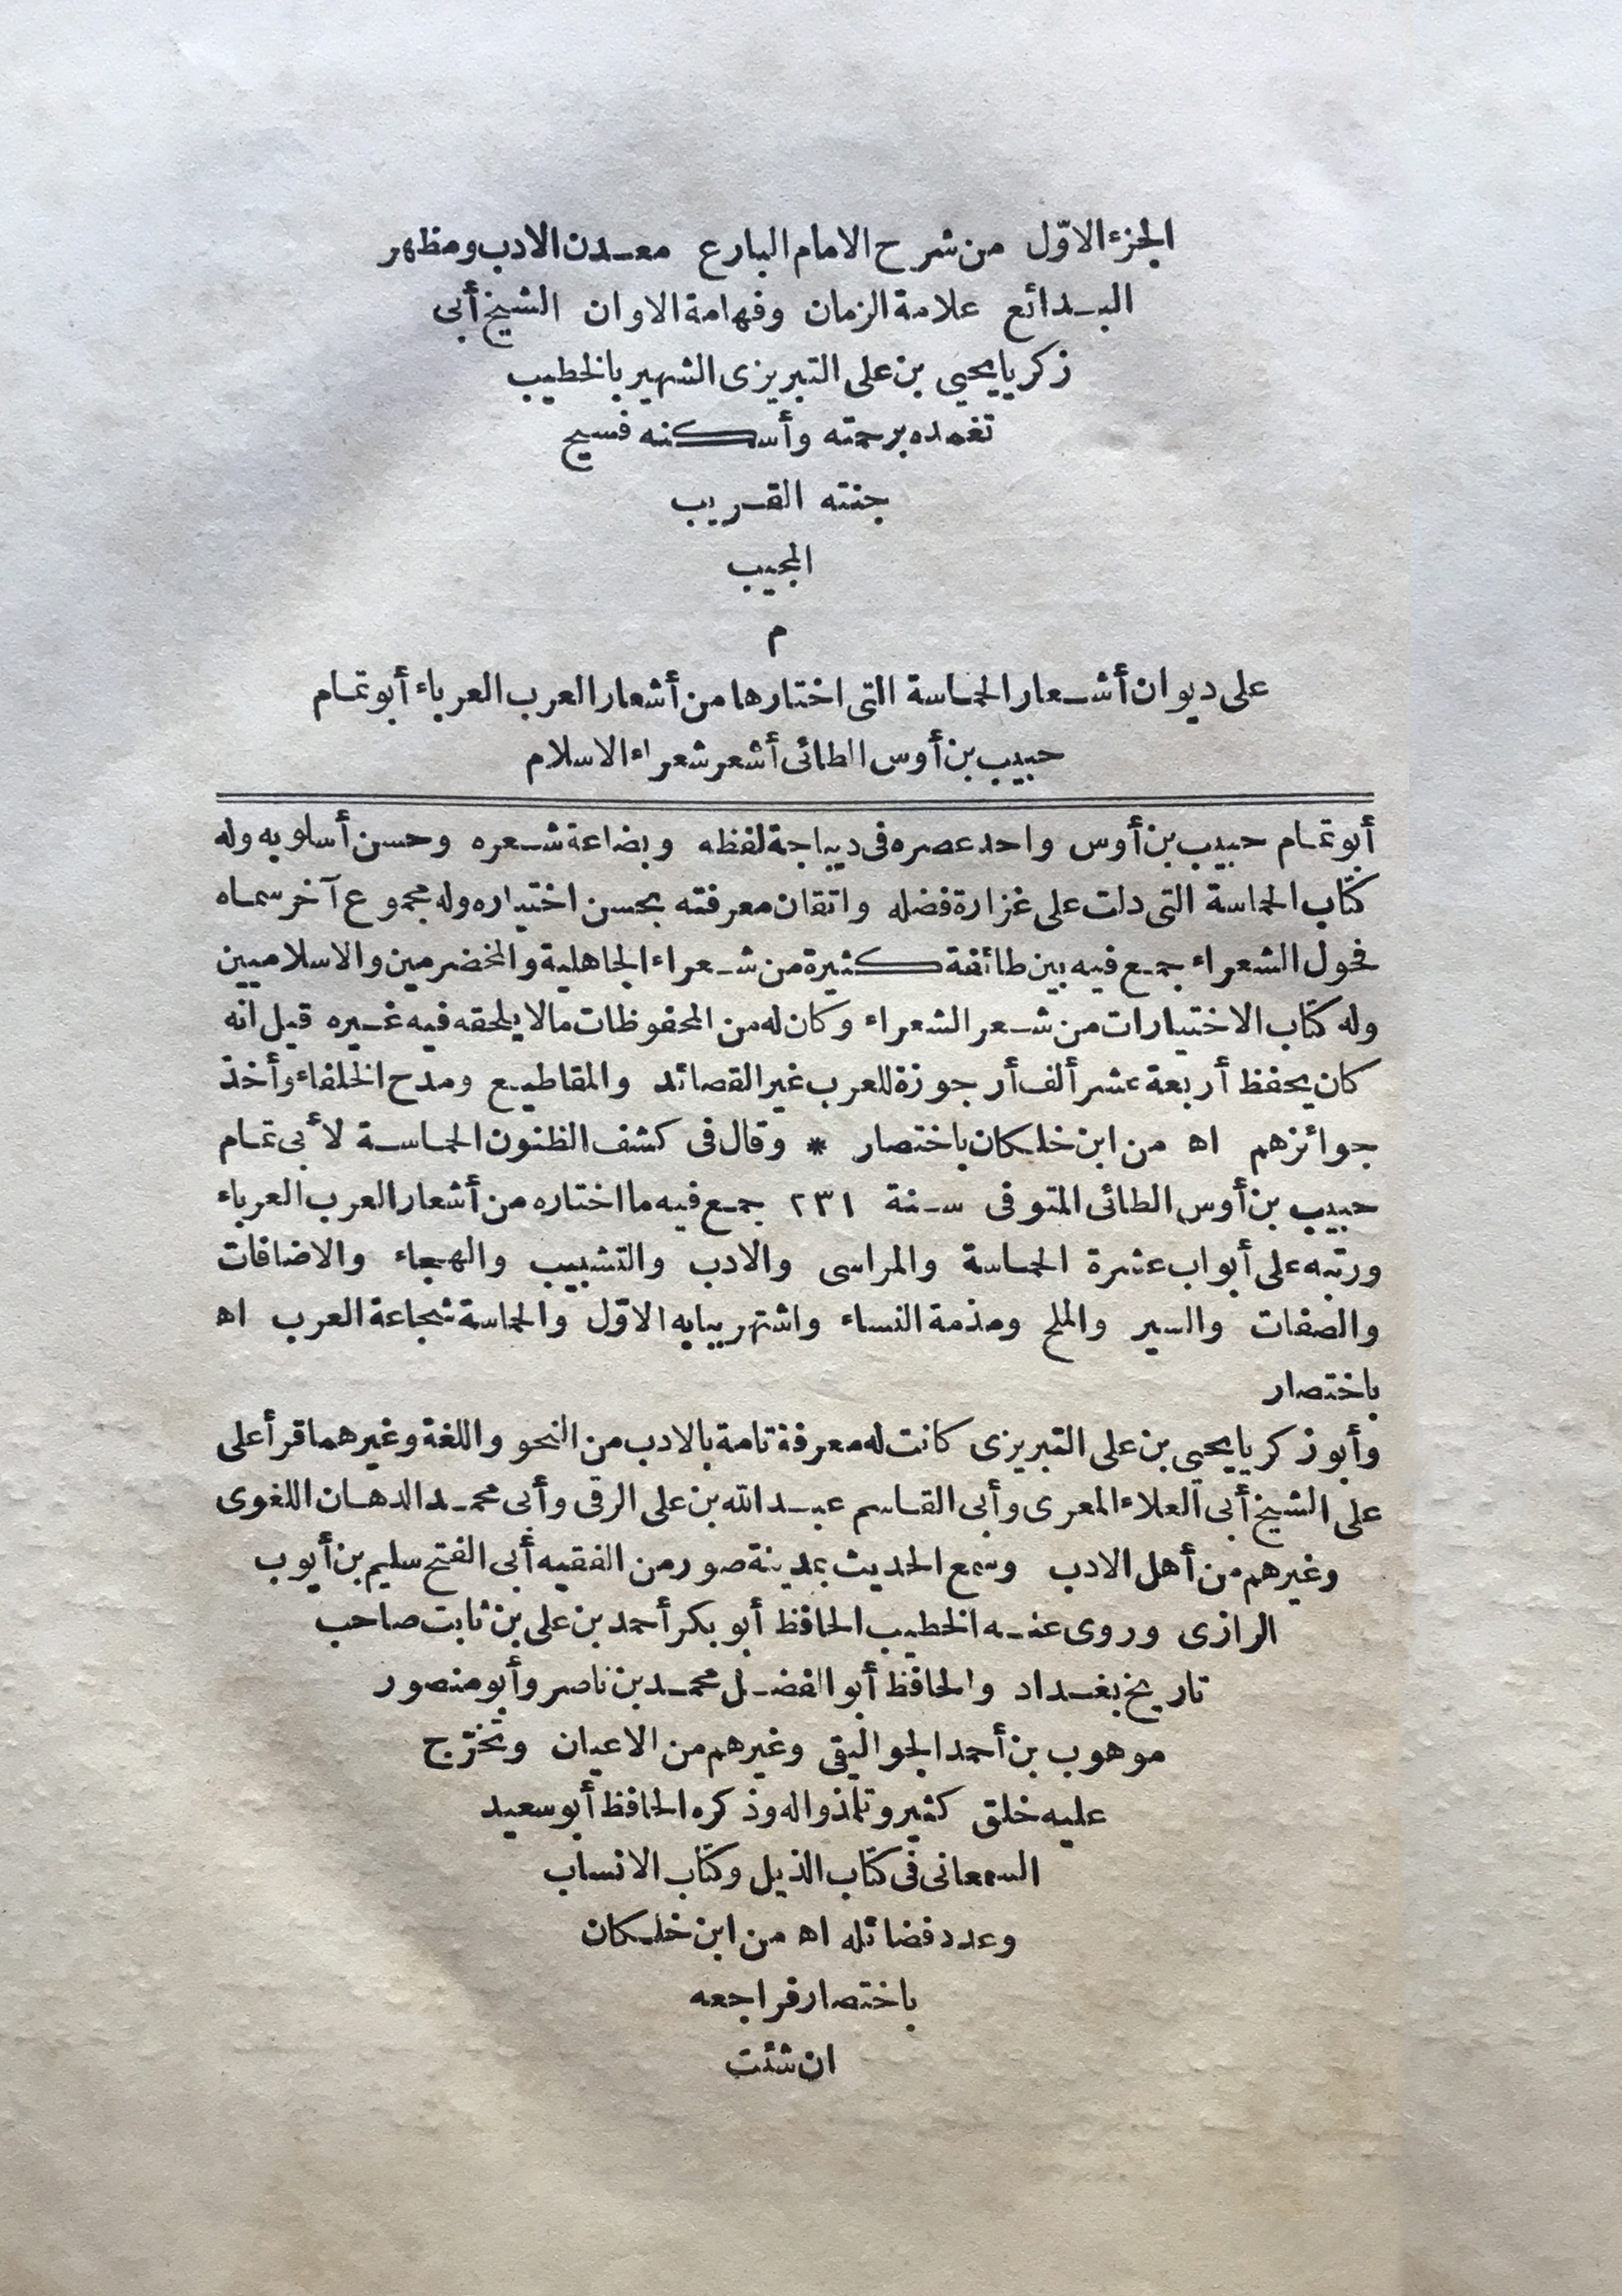 الجزء الاوّل من شرح الامام البارع معدن الادب ومظهر
البدائع علامة الزمان وفهامة الاوان الشيخ أبى
زكريا يحيى بن على التبريزى الشهير بالخطيب
تغمده برحمته وأسكنه فسيح
جنته القريب
المجيب
م
على ديوان أشعار الحماسة التى اختارها من أشعار العرب العرباء أبو تمام
حبيب بن أوس الطائى أشعر شعراء الاسلام
أبو تمام حبيب بن أوس واحد عصره فى ديباجة لفظه وبضاعة شعره وحسن أسلوبه وله
كتاب الحماسة التى دلت على غزارة فضله واتقان معرفته بحسن اختياره وله مجموع آخر سماه
فحول الشعراء جمع فيه بين طائفة كثيرة من شعراء الجاهلية والمخضرمين والاسلاميين
وله كتاب الاختيارات من شعر الشعراء وكان له من المحفوظات مالا يلحقه فيه غيره قيل انه
كان يحفظ أربعة عشر ألف أرجوزة للعرب غير القصائد والمقاطيع ومدح الخلفاء وأخذ
جوائزهم اه من ابن خلكان باختصار * وقال فى كشف الظنون الحماسة لأبى تمام
حبيب بن أوس الطائى المتوفى سنة ٢٣١ جمع فيه ما اختاره من أشعار العرب العرباء
ورتبه على أبواب عشرة الحماسة والمراسى والادب والتشبيب والهجاء والاضافات
والصفات والسير والملح ومذمة النساء واشتهر ببابه الاوّل والحماسة شجاعة العرب اه
باختصار
وأبو زكريا يحيى بن على التبريزى كانت له معرفة تامة بالادب من النحو واللغة وغيرهما قرأ على
على الشيخ أبى العلاء المعرى وأبى القاسم عبد الله بن على الرقى وأبى محمد الدهان اللغوى
وغيرهم من أهل الادب وسمع الحديث بمدينة صور من الفقيه أبى الفتح سليم بن أيوب
الرازى وروى عنه الخطيب الحافظ أبو بكر أحمد بن على بن ثابت صاحب
تاريخ بغداد والحافظ أبو الفضل محمد بن ناصر وأبو منصور
موهوب بن أحمد الجواليقى وغيرهم من الاعيان وتخرّج
عليه خلق كثير وتلمذوا له وذكره الحافظ أبو سعيد
السمعانى فى كتاب الذيل وكتاب الانساب
وعدد فضائله اه من ابن خلكان
باختصار فراجعه
ان شئت